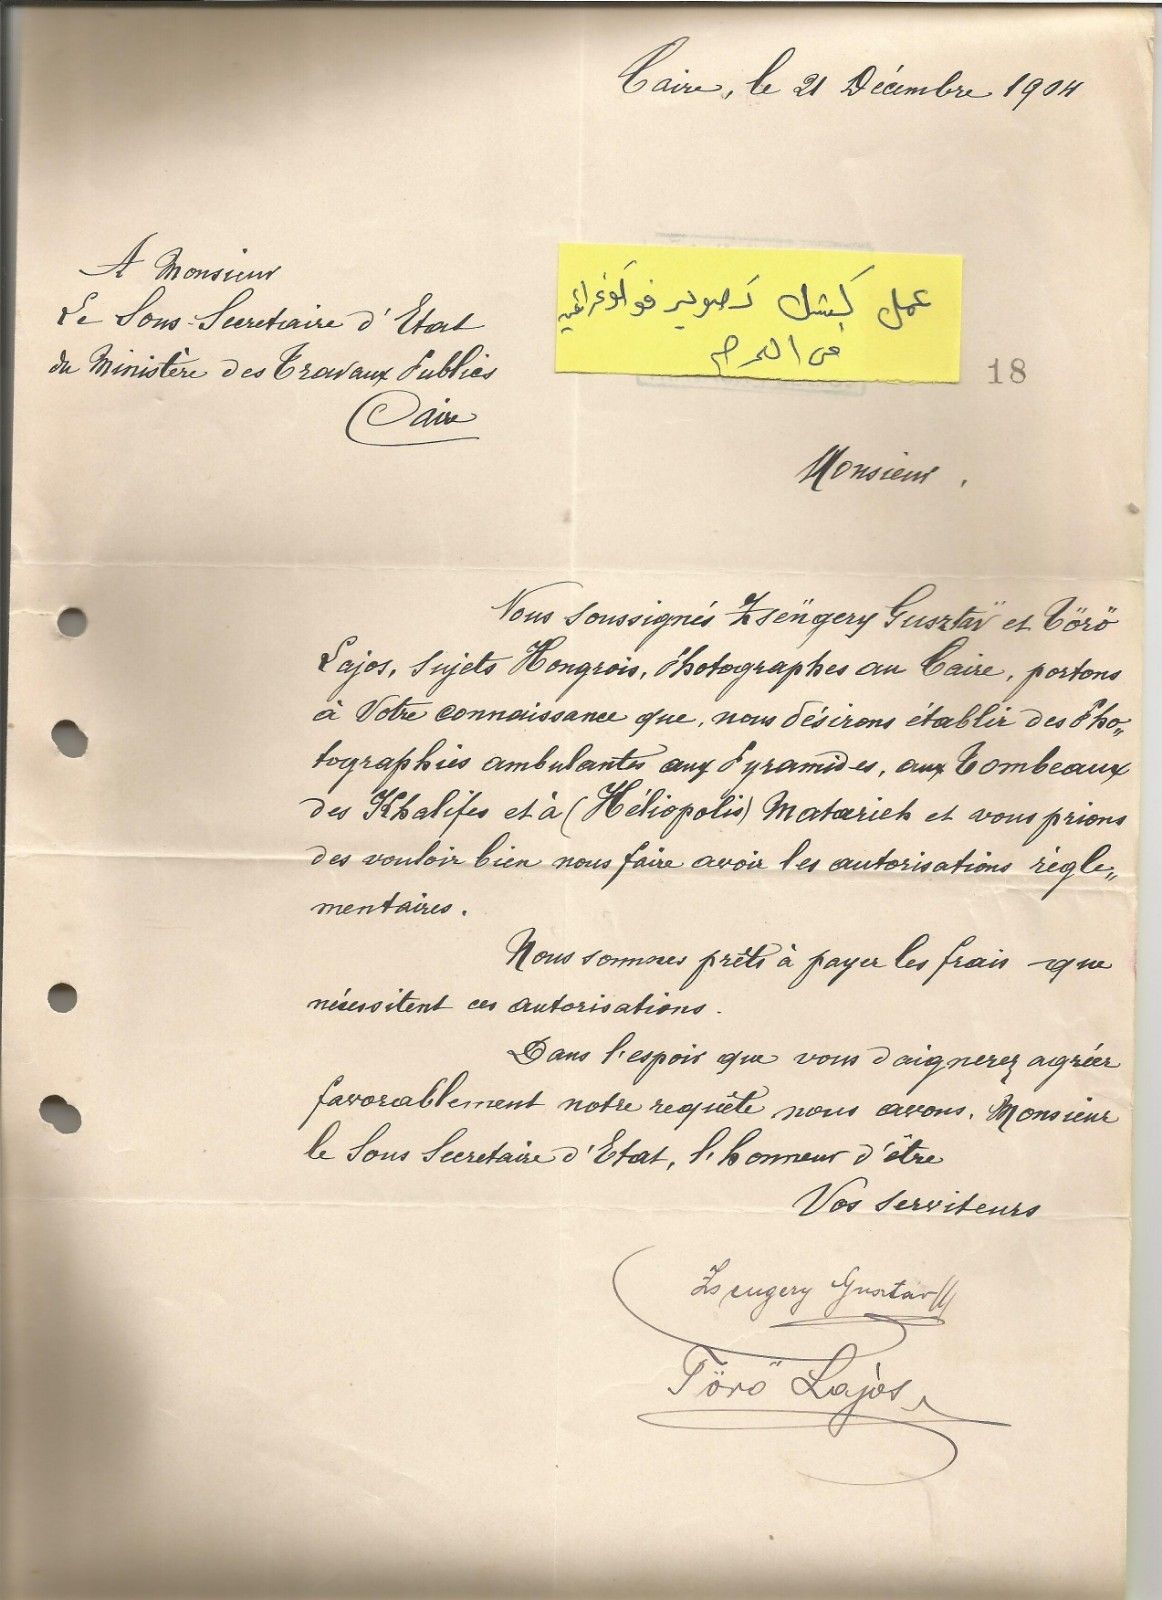 Caire, le 21 Décembre 1904
A Monsieur
Le Sous-Secretaire d'Etat
du Ministère des Travaux Publics
Caire
عمل كشك تصوير فوتوغرافي
في الهرم
18
Monsieur,
Nous soussignés Zsëngery Gusztav et Törö
Lajos, sujets Hongrois, Photographes au Caire, portons
à Votre connaissance que, nous désirons établir des Pho„
tographies ambulantes aux Pyramides, aux Tombeaux
des Khalifes et à (Héliopolis) Matarieh et vous prions
des vouloir bien nous faire avoir les autorisations régle„
mentaires.
Nous sommes prêts à payer les frais que
nécessitent ces autorisations.
Dans l'espoir que vous daignerez agréer
favorablement notre requête nous avons, Monsieur
le Sous Secretaire d'Etat, l'honneur d'être
Vos serviteurs
Zsengery Gusztáv
Törö Lajos